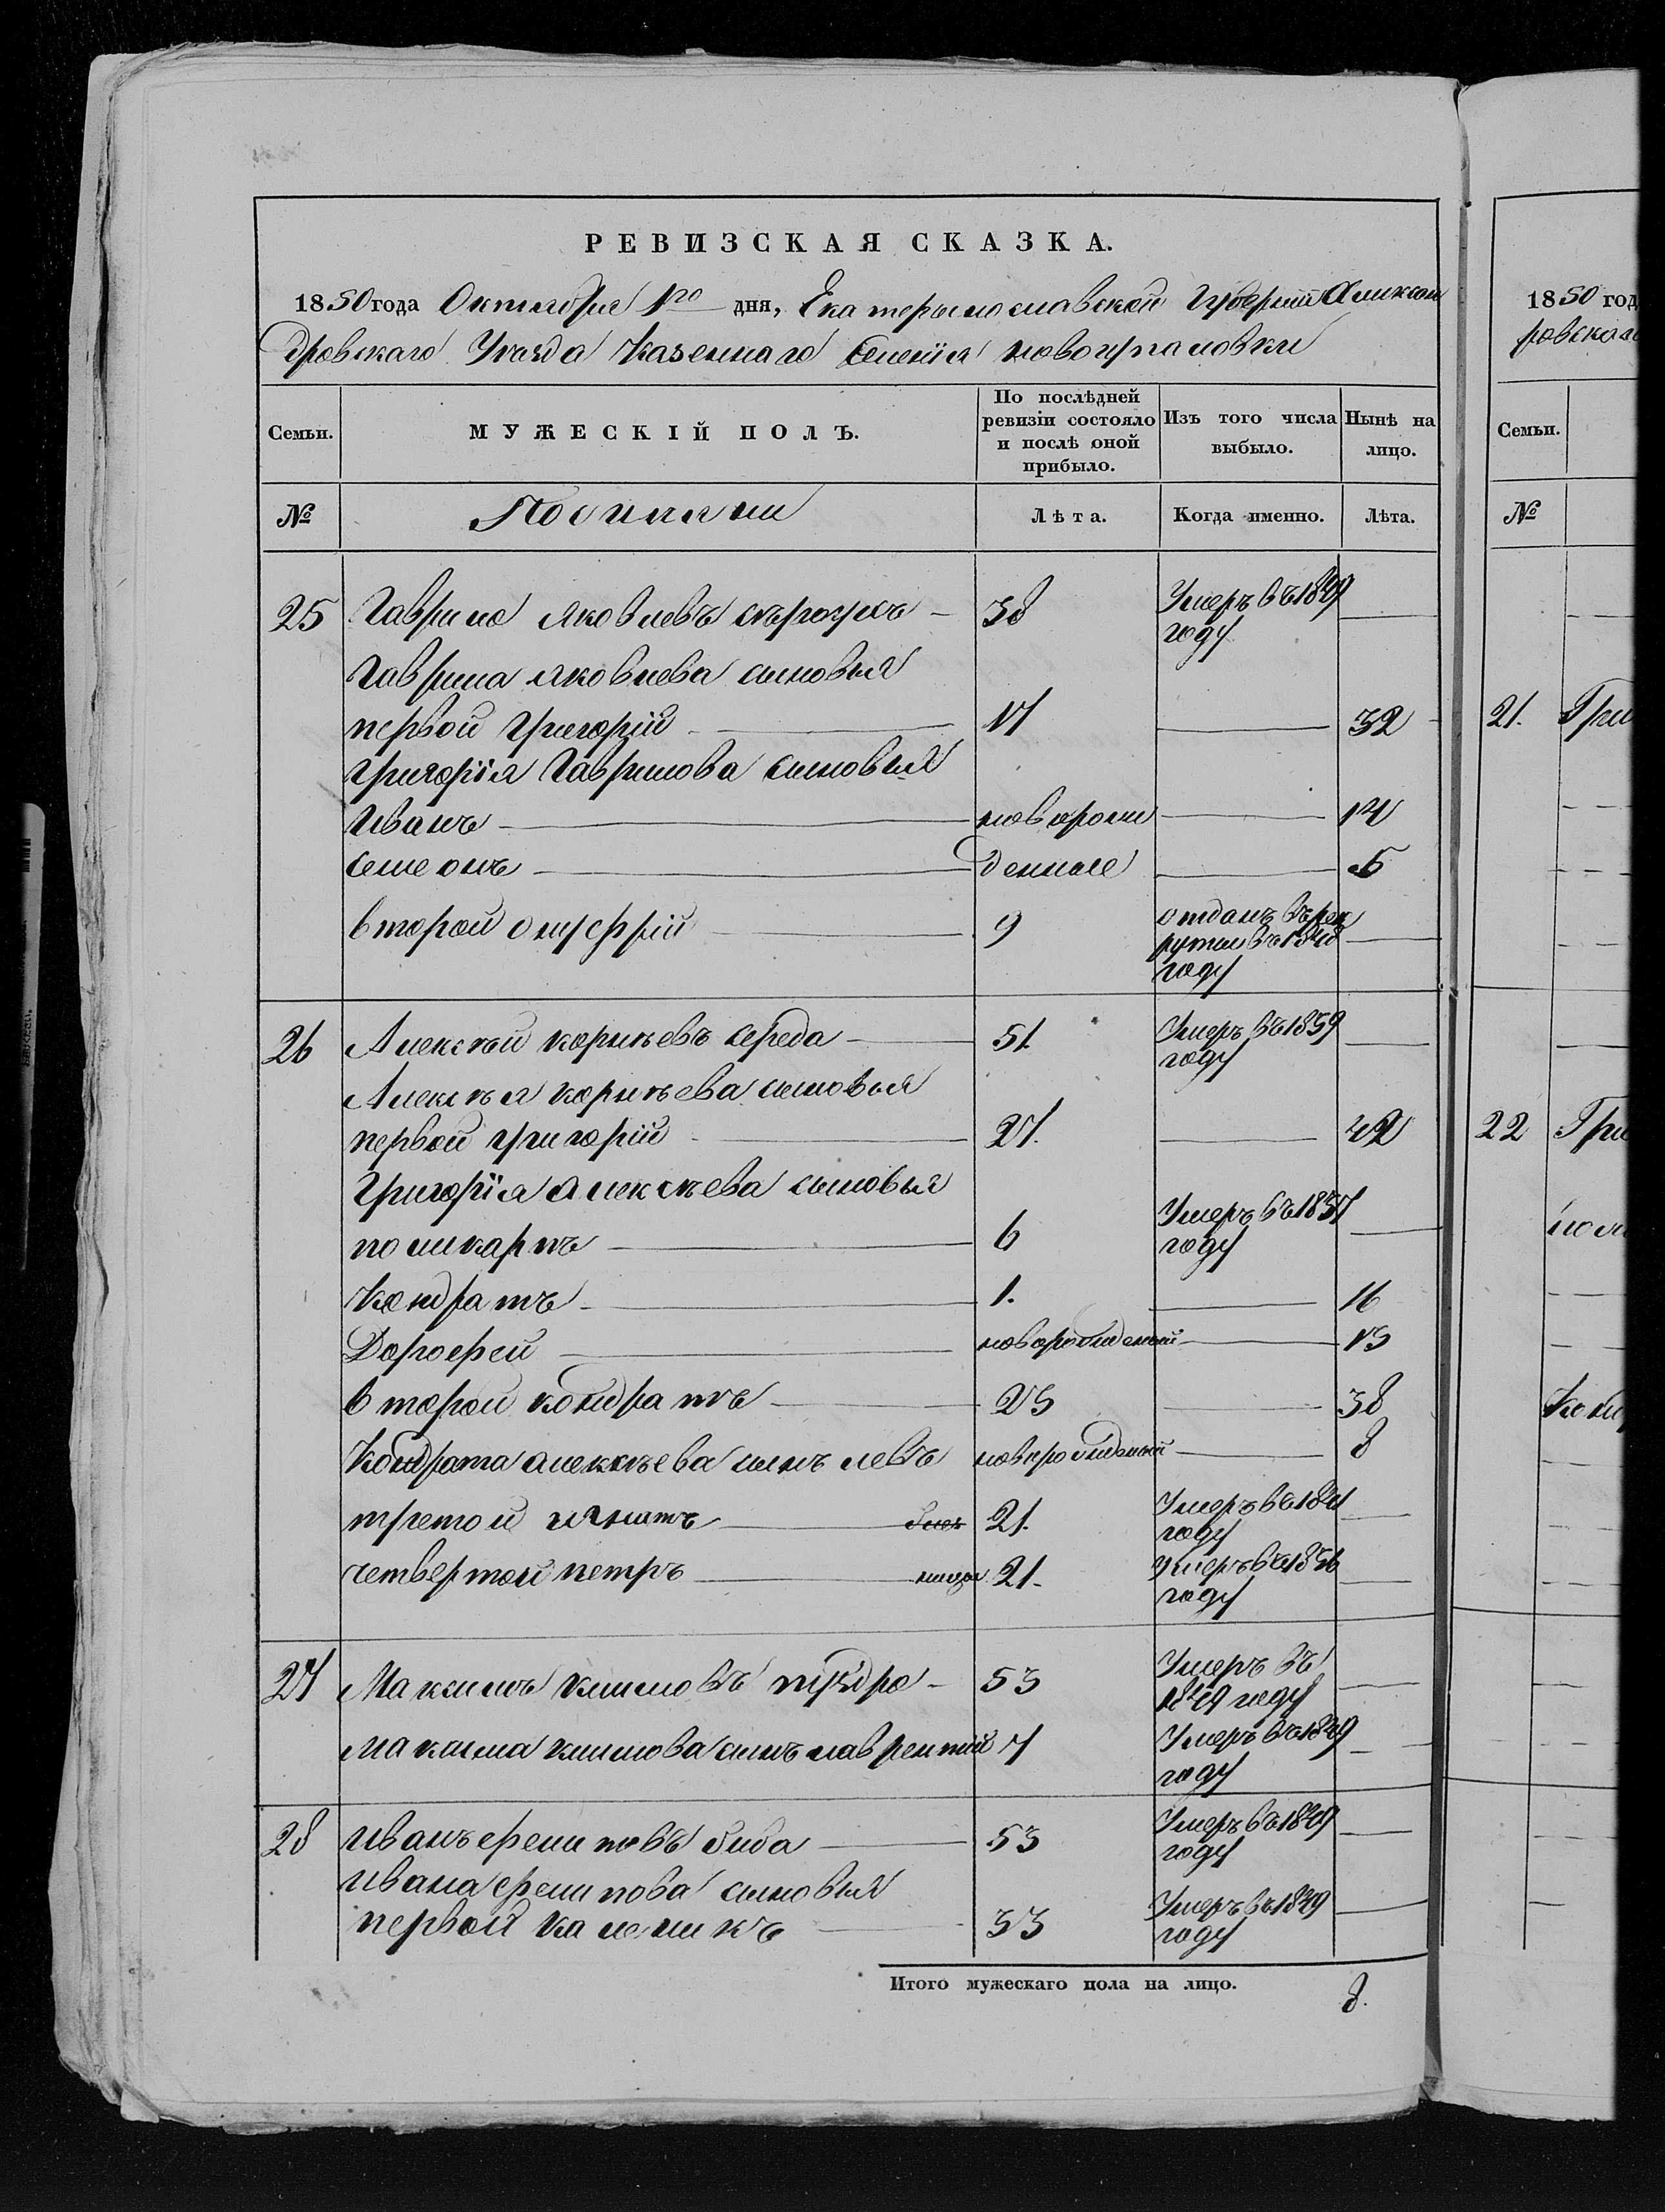 РЕВИЗСКАЯ СКАЗКА.
1850 года Октября 1го дня, Екатеринославской Губернии Алексан
дровскаго Уезда Казеннаго Селенія
По послѣдней
ревизіи состояло
и послѣ оной
прибыло.
Изъ того числа
выбыло.
Нынѣ на
лицо.
Семьи.
МУЖЕСКІЙ ПОЛЪ.
№
Поселяни
Лѣта.
Когда именно.
Лѣта.
25 Гаврило Яковлевъ 38 Умеръ въ 1849
году
Гаврила Яковлева сыновья
первой Григорій 17 32
Григорія Гаврилова сыновья
Иванъ новорож 14
Семеонъ денные 5
второй онуфрій 9 отданъ въ рек
руты въ 1848
году
26 Алексѣй корнѣевъ середа 51. Умеръ въ 1839
году
Алексѣя корнѣева сыновья
первой григорій 27. 42
Григорія Алексѣева сыновья
поликарпъ 6 Умеръ въ 1837
году
Кондратъ 1. 16
Дорофей новорожденый 13
второй кондратъ 23 38
Кондрата алексѣева сынъ левъ новорожденый 8
третой игнатъ 21. Умеръ въ 1841
году
четвертой петръ 21. Умеръ въ 1836
году
27 Максимъ климовъ 53 Умеръ въ
1849 году
Максима климова сынъ лаврентій 7 Умеръ въ 1849
году
28 Иванъ 53 Умеръ въ 1849
году
Ивана сыновья
первой каленикъ 33 Умеръ въ 1849
году
Итого мужескаго пола на лицо.
8.
1850 год
ровскаго
Семьи.
№
21. Гри
22 Гри